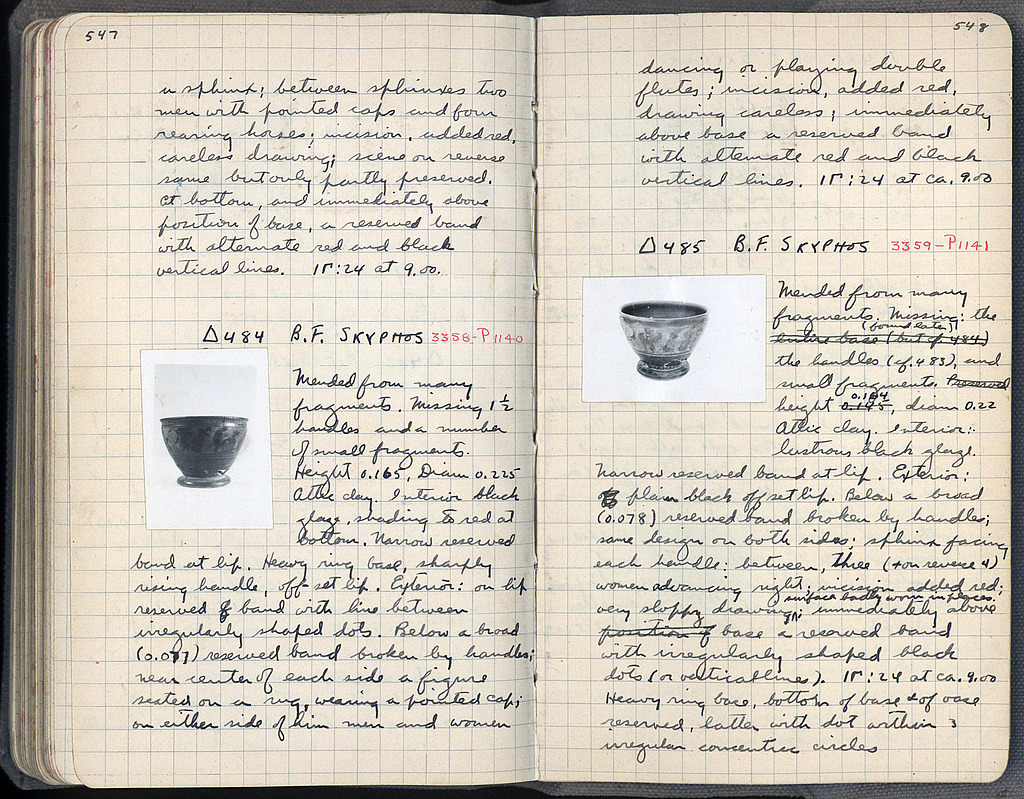 547
a sphinx; between sphinxes two
men with pointed caps and four
rearing horses; incision, added red,
careless drawing; scene on reverse
same but only partly preserved.
At bottom, and immediately above
position of base, a reserved band
with alternate red and black
vertical lines. 1Γ:24 at 9.00.
Δ484 B.F. SKYPHOS 3358-P1140
Mended from many
fragments. Missing 1 1/2
handles and a number
of small fragments.
Height 0.165, Diam 0.225
Attic clay. Interior black
glaze, shading to red at
bottom. Narrow reserved
band at lip. Heavy ring base, sharply
rising handle, off-set lip. Exterior: on lip
reserved band with line between
irregularly shaped dots. Below a broad
(0.077) reserved band broken by handles;
near center of each side a figure
seated on a rug, wearing a pointed cap;
on either side of him men and women
548
dancing or playing double
flutes; incision, added red,
drawing careless; immediately
above base a reserved band
with alternate red and black
vertical lines. 1Γ:24 at ca. 9.00
Δ485 B.F. SKYPHOS 3359-P1141
Mended from many
fragments. Missing: the
(found later!)
entire base (but cf. 484)
the handles (cf. 483), and
small fragments. Preserved
0.164
height 0.145, diam 0.22
Attic clay. Interior:
lustrous black glaze.
Narrow reserved band at lip. Exterior:
plain black offset lip. Below a broad
(0.078) reserved band broken by handles;
same design on both sides: sphinx facing
each handle: between, three (+ on reverse 4)
women advancing right; incision added red;
surface badly worn in places.
very sloppy drawing; immediately above
position of base a reserved band
with irregularly shaped black
dots (or vertical lines). 1Γ:24 at ca. 9.00
Heavy ring base, bottom of base & of vase
reserved, latter with dot within 3
irregular concentric circles